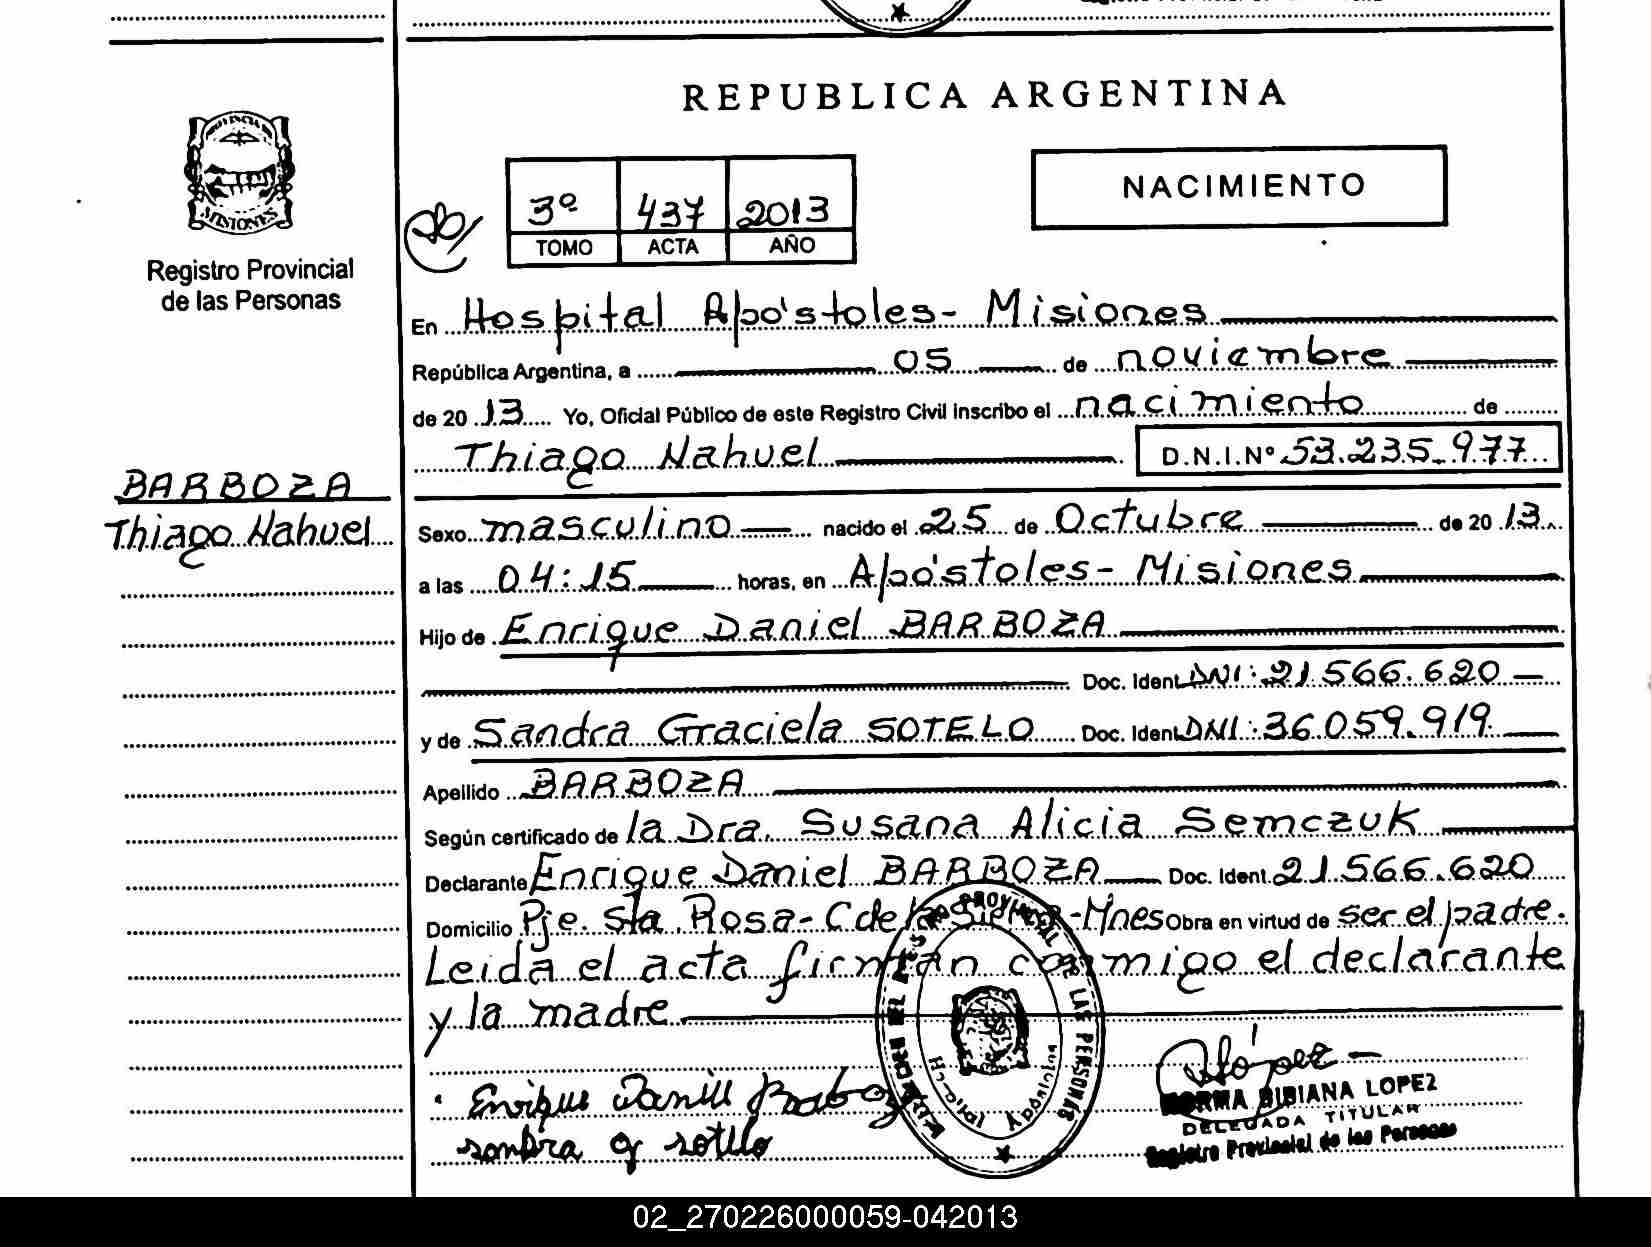 REPUBLICA ARGENTINA
PROVINCIA DE
MISIONES
Registro Provincial
de las Personas
3º 437 2013
TOMO ACTA AÑO
NACIMIENTO
En Hospital Apóstoles- Misiones
República Argentina, a 05 de noviembre
de 2013 Yo, Oficial Público de este Registro Civil inscribo el nacimiento de
Thiago Nahuel D.N.I.Nº 53.235.977
BARBOZA
Thiago Nahuel
Sexo masculino nacido el 25 de Octubre de 2013
a las 04:15 horas, en Apóstoles- Misiones
Hijo de Enrique Daniel BARBOZA
Doc. Ident DNI: 21.566.620
y de Sandra Graciela SOTELO Doc. Ident DNI: 36.059.919
Apellido BARBOZA
Según certificado de la Dra. Susana Alicia Semczuk
Declarante Enrique Daniel BARBOZA Doc. Ident. 21.566.620
Domicilio Pje. Sta. Rosa- C de la Sierra -Mnes Obra en virtud de ser el padre.
Leida el acta firman conmigo el declarante
y la madre
Enrique Daniel
sotelo
PROVINCIAL DE LAS PERSONAS
López
NORMA BIBIANA LOPEZ
DELEGADA TITULAR
Registro Provincial de las Personas
02_270226000059-042013